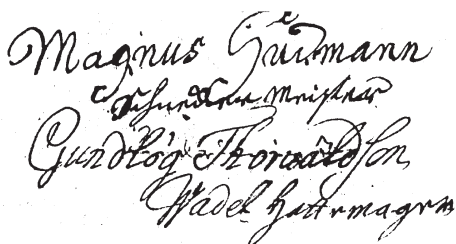 Magnus Gudmann
Schnedker meister
Gundlög Thorvaldson
Wadel Hattemager